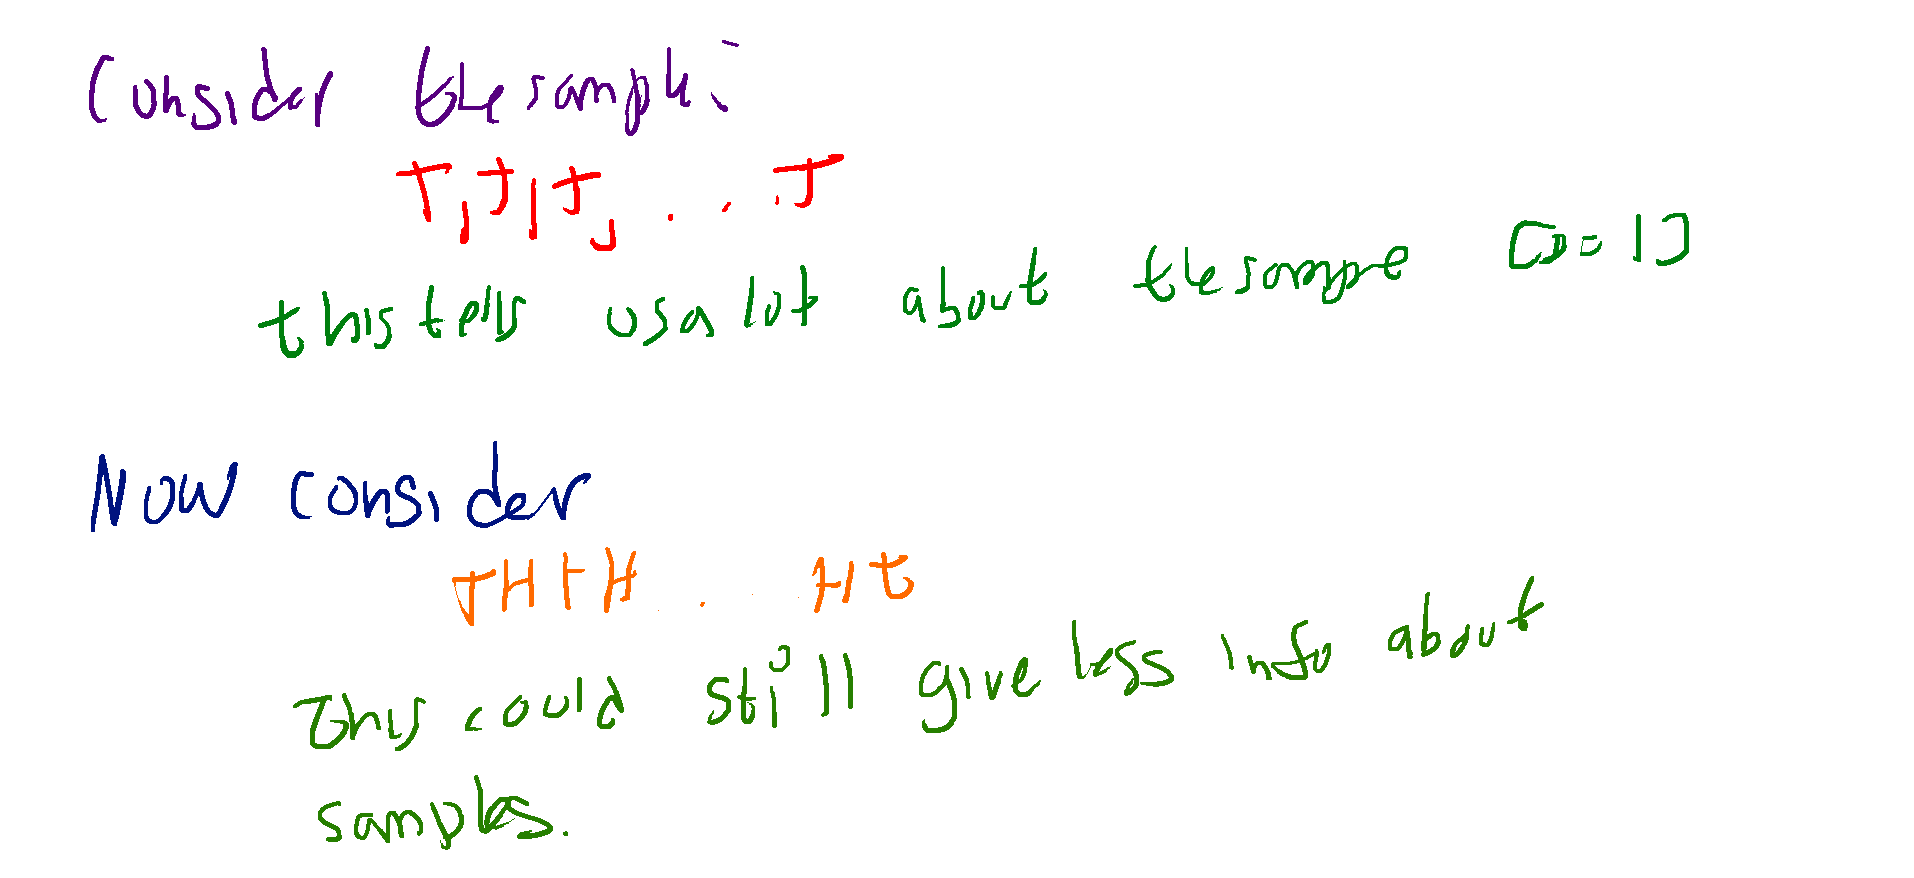 Consider the sample:
T, T, T, . . . T
this tells us a lot about the sampe [D = 1]
Now consider
THTH . . . Ht
This could still give less info about
samples.